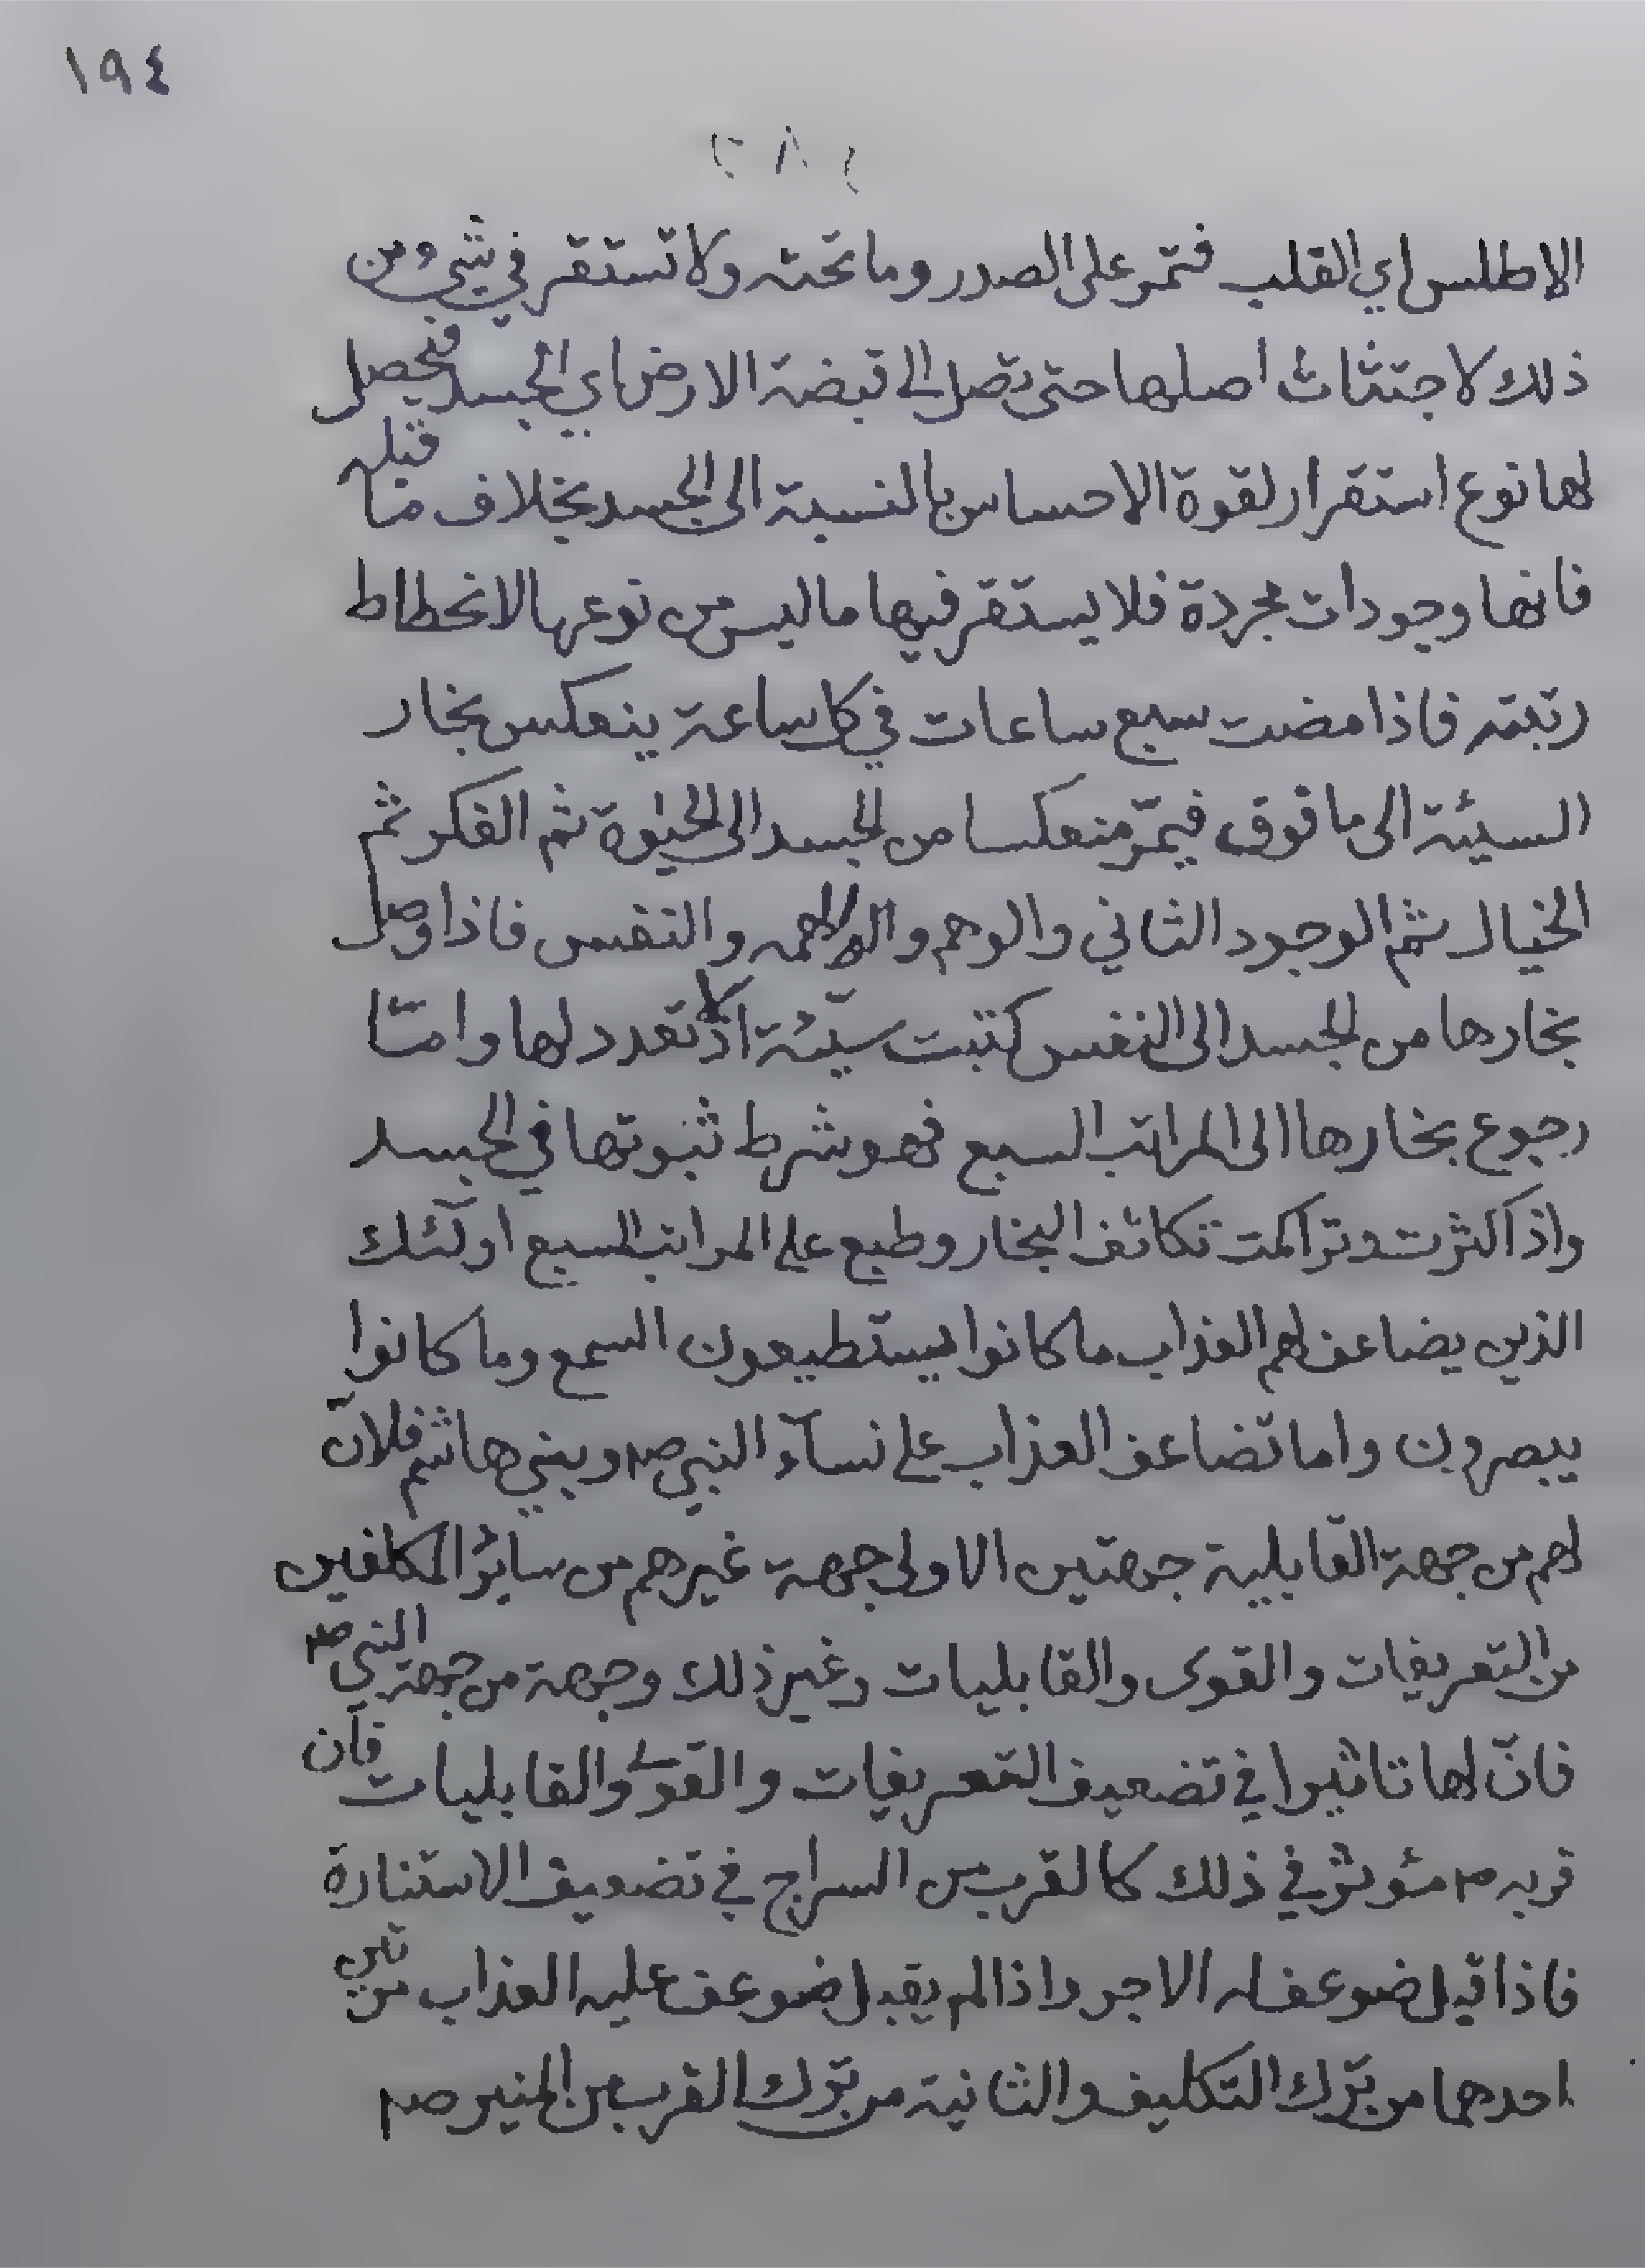 ١٩٤
الاطلس اي القلب فتمر على الصدر وما تحته ولا تستقر في شيء من
ذلك لاجتثاث اصلها حتى تصل الى قبضة الارض اي الجسد فيحصل
لها نوع استقرار لقوة الاحساس بالنسبة الى الجسد بخلاف ما قبله
فانها وجودات مجردة فلا يستقر فيها ما ليس من نوعها لانحطاط
رتبته فاذا مضت سبع ساعات في كل ساعة ينعكس بخار
السيئة الى ما فوق فيمرّ منعكسا من الجسد الى الحيٰوة ثم الفكر ثم
الخيال ثم الوجود الثاني والوهم والنفس فاذا وصل
بخارها من الجسد الى النفس كتبت سيّئة اذ لا تعدد لها وامّا
رجوع بخارها الى المراتب السبع فهو شرط ثبوتها في الجسد
واذا كثرت وتراكمت تكاثف البخار وطبع على المراتب السبع اولٓئك
الذين يضاعف لهم العذاب ما كانوا يستطيعون السمع وما كانوا
يبصرون واما تضاعف العذاب على نسآء النبي صم وبني هاشم فلانّ
لهم من جهة القابلية جهتين الاولى جهة غيرهم من ساير المكلفين
من التعريفات والقوى والقابليات وغير ذلك وجهة من جهة النبي صم
فانّ لها تاثيرا في تضعيف التعريفات والقوى والقابليات فان
قربه صم مؤثر في ذلك كالقرب من السراج في تضعيف الاستنارة
فاذا قبل ضوعف له الاجر واذا لم يقبل ضوعف عليه العذاب مرتين
احدهما من ترك التكليف والثانية من ترك القرب من المنير صم